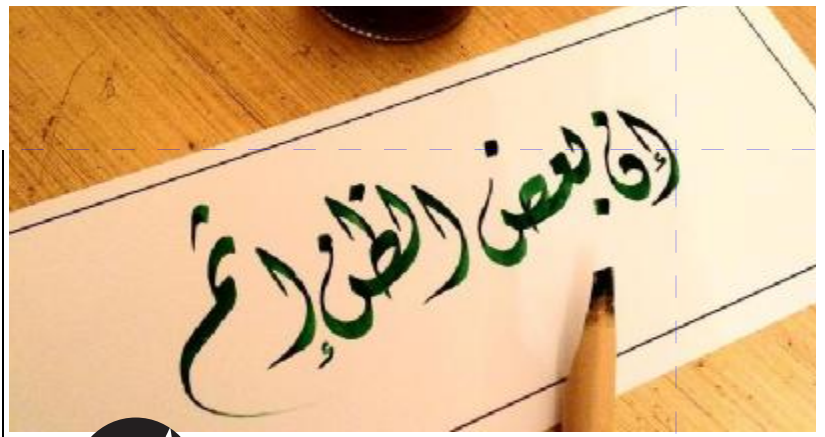 إن بعض الظن إثم